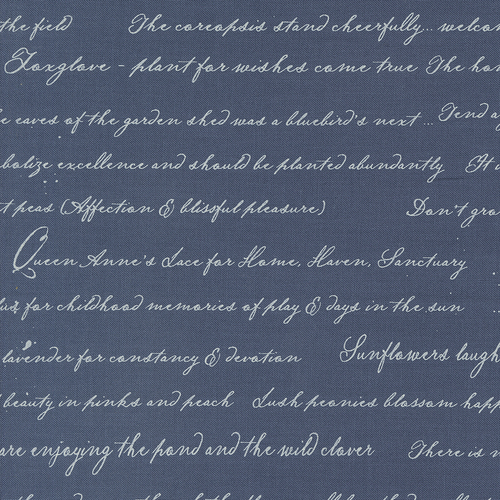 the field The coreopsis stand cheerfully... welcom
Foxglove - plant for wishes come true The hon
e eaves of the garden shed was a bluebird's next ... Tend a
bolize excellence and should be planted abundantly It i
t peas (Affection & blissful pleasure) Don't gro
Queen Anne's Lace for Home, Haven, Sanctuary
for childhood memories of play & days in the sun ..
lavender for constancy & devotion Sunflowers laugh
beauty in pinks and peach Lush peonies blossom happ
are enjoying the pond and the wild clover There is n